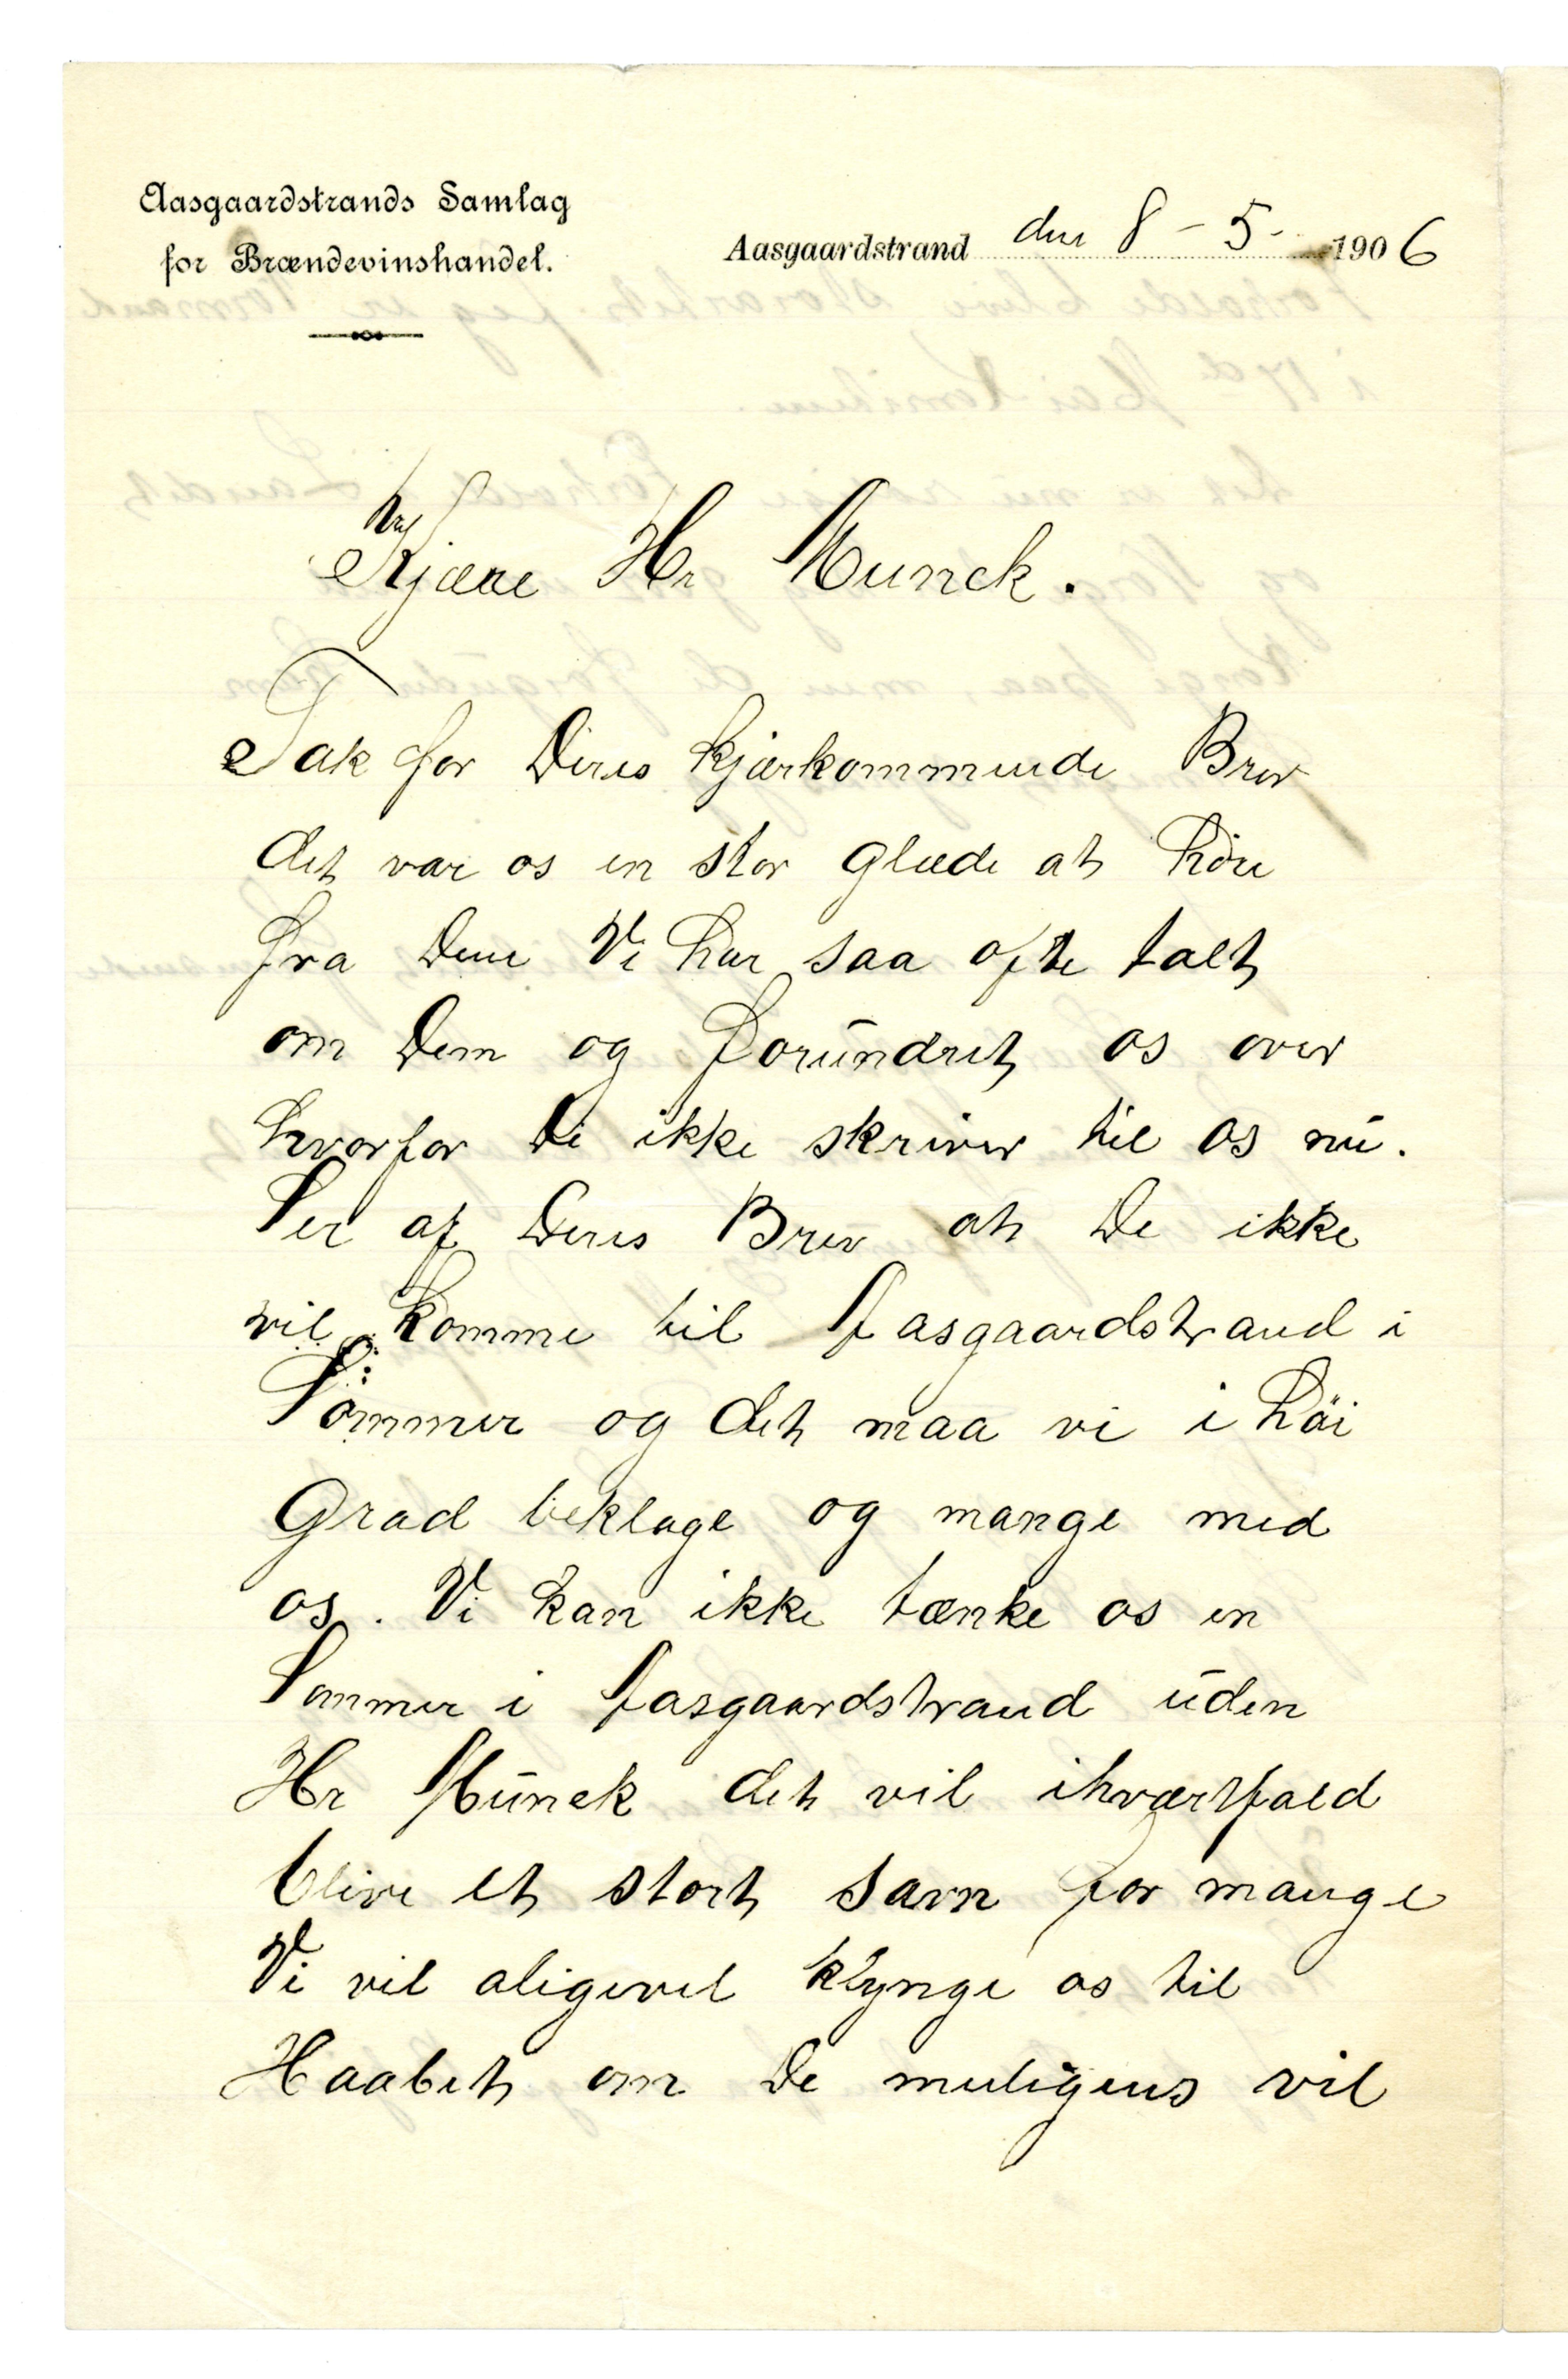 Aasgaardstrands Samlag
for Brændevinshandel.
Aasgaardstrand den 8 – 5 – 1906
Kjære Hr Munck.
Tak for Deres kjærkommende Brev
det var os en stor Glæde at høre
fra Dem Vi har saa ofte talt
om Dem og forundret os over
hvorfor De ikke skriver til os nu.
Ser af Deres Brev at De ikke
vil komme til Aasgaardstrand i
Sommer og det maa vi i höi
Grad beklage og mange med
os. Vi kan ikke tænke os en
Sommer i Aasgaardstrand uden
Hr Munck det vil ihværtfald
blive et stort savn for mange
Vi vil aligevel klynge os til
Haabet om De muligens vil